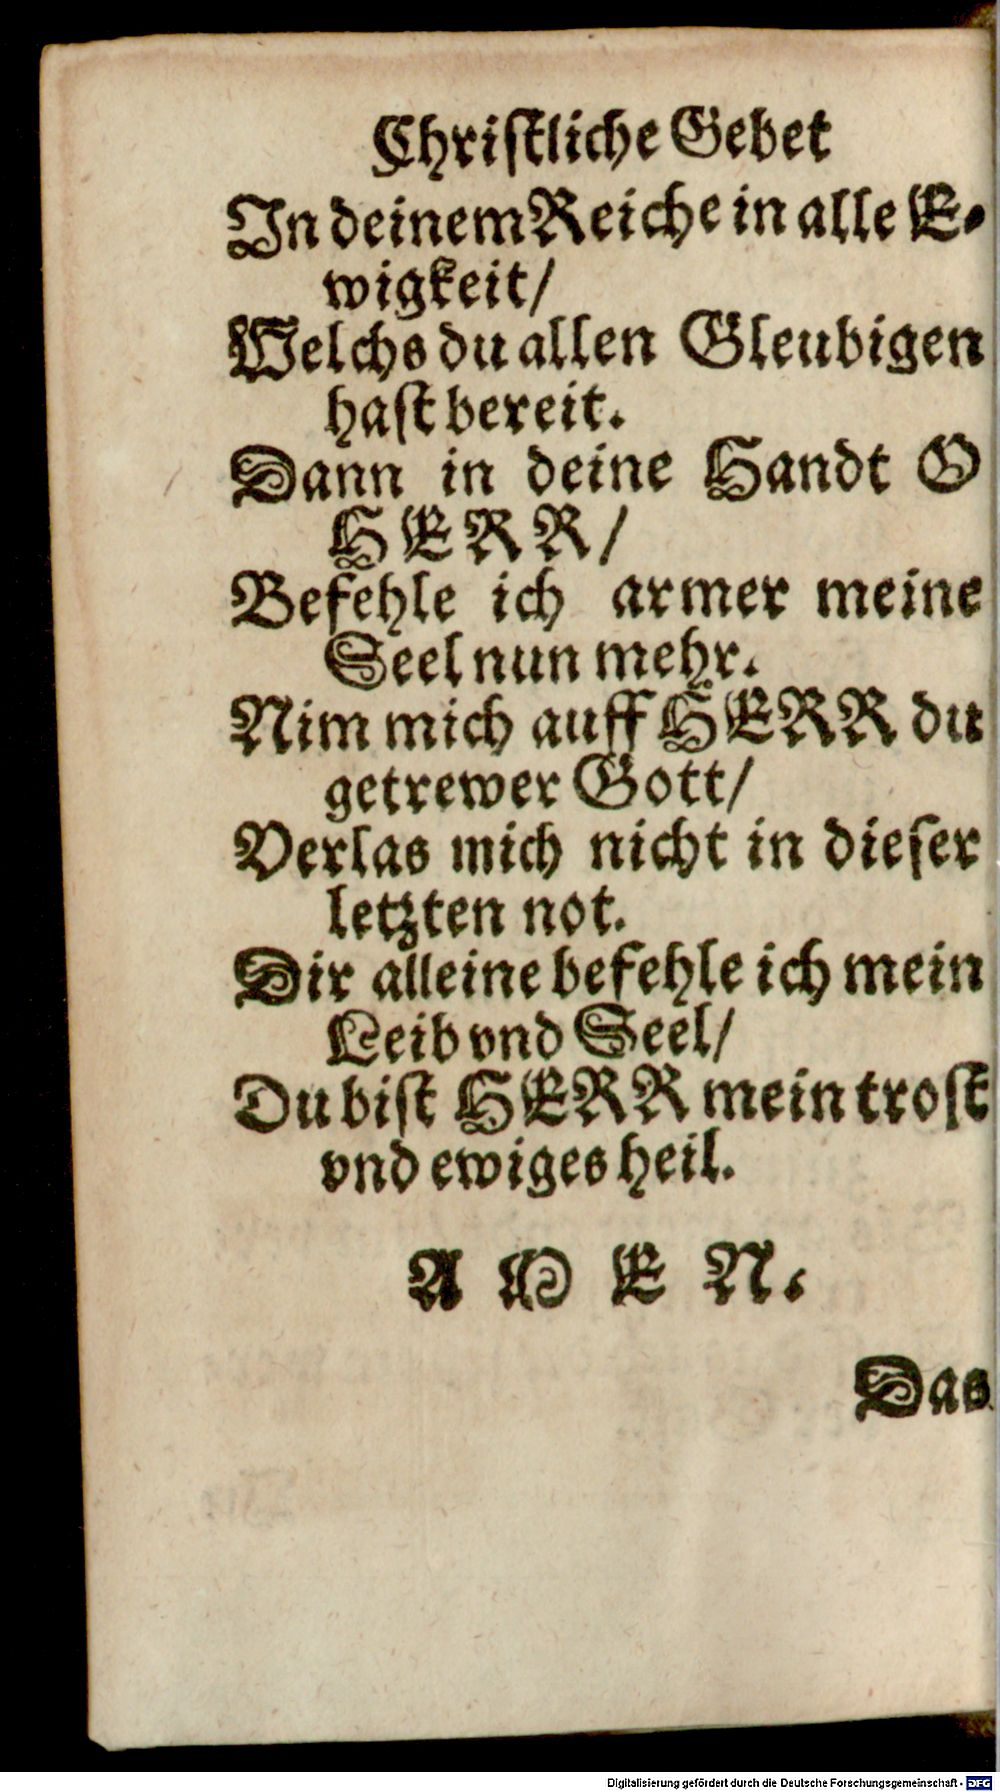 Christliche Gebet
In deinem Reiche in alle E-
wigkeit/
Welchs du allen Gleubigen
hast bereit.
Dann in deine Handt O
HERR/
Befehle ich armer meine
Seel nun mehr.
Nim mich auff HERR du
getrewer Gott/
Verlas mich nicht in dieser
letzten not.
Dir alleine befehle ich mein
Leib vnd Seel/
Du bist HERR mein trost
vnd ewiges heil.
A M E N.
Das
Digitalisierung gefördert durch die Deutsche Forschungsgemeinschaft - DFG